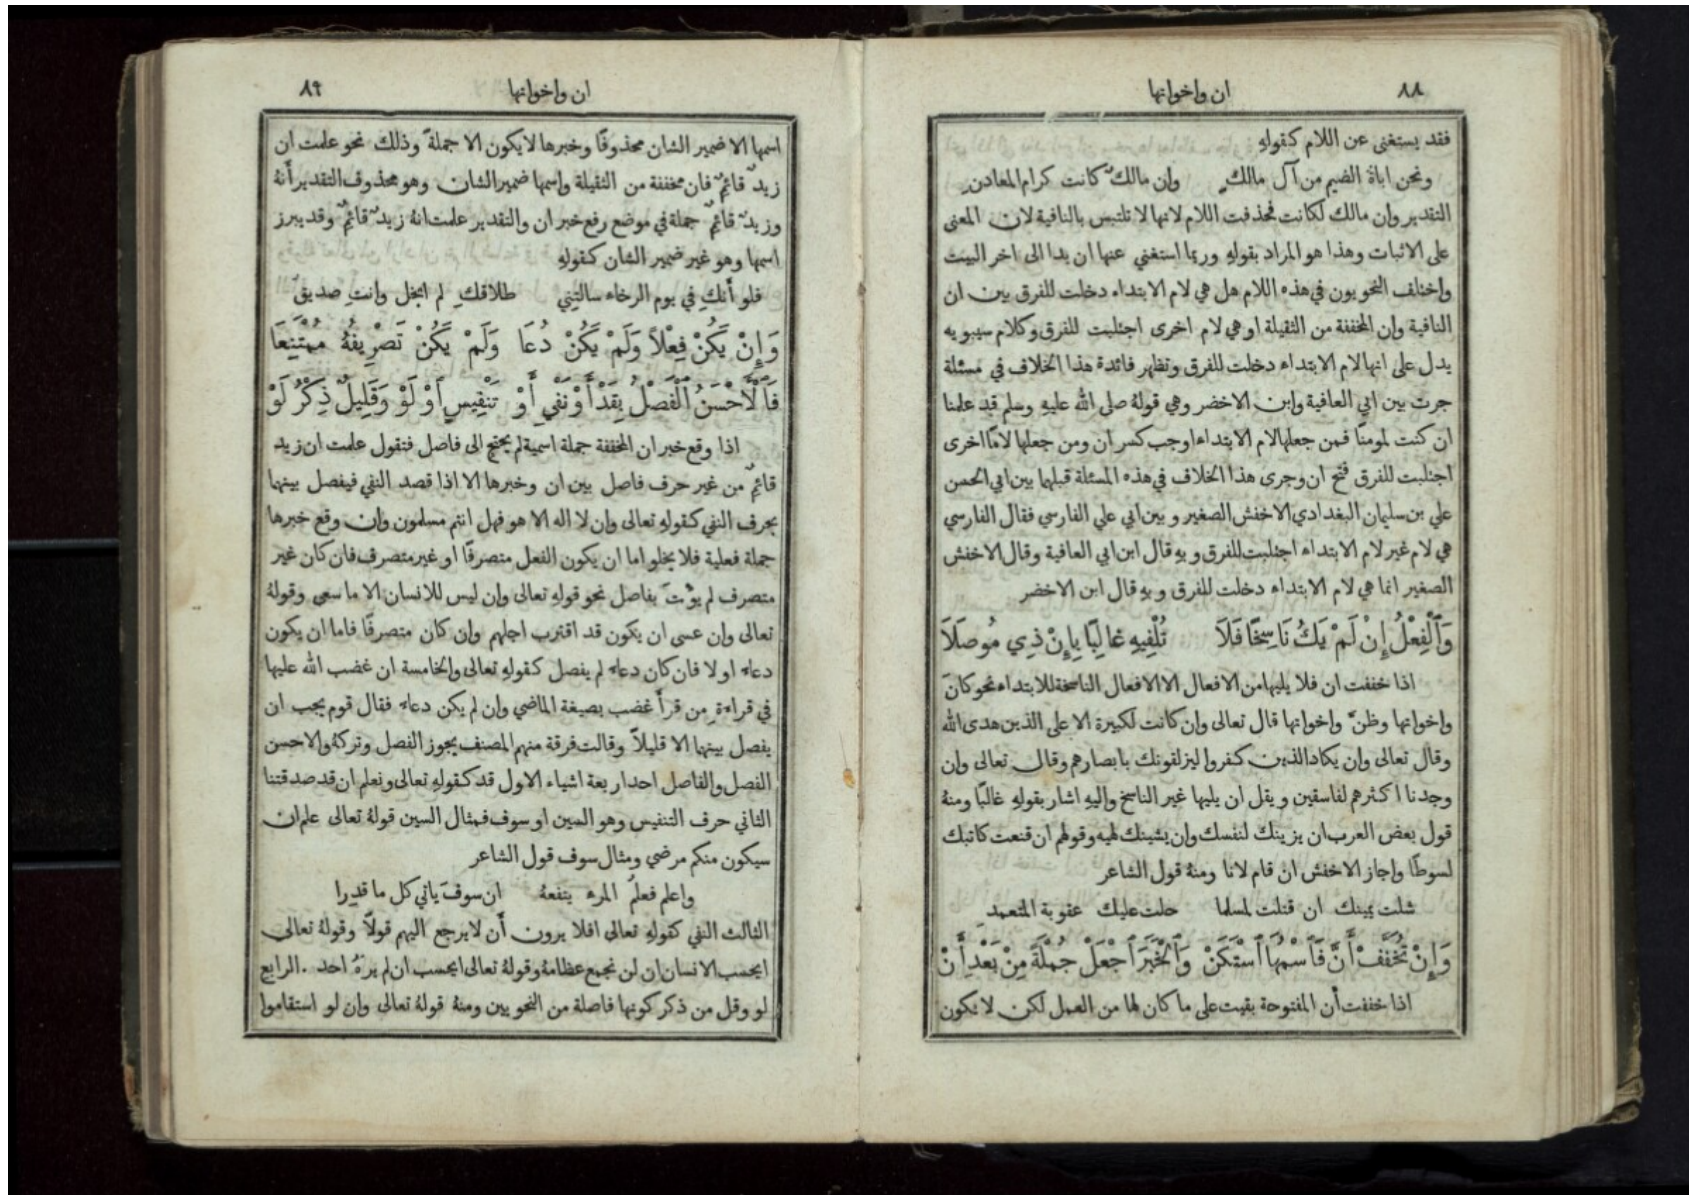 ٨٨
ان واخواتها
فقد يستغنى عن اللام كقولهِ
ونحن اباة الضيم من آل مالكٍ وان مالكٌ كانت كرام المعادنِ
التقدير وان مالك لكانت فحذفت اللام لانها لا تلتبس بالنافية لان المعنى
على الاثبات وهذا هو المراد بقولهِ وربما استغني عنها ان بدا الى اخر البيت
واختلف النحويون في هذه اللام هل هي لام الابتداء دخلت للفرق بين ان
النافية وان المخففة من الثقيلة او هي لام اخرى اجتلبت للفرق وكلام سيبويه
يدل على انها لام الابتداء دخلت للفرق وتظهر فائدة هذا الخلاف في مسئلة
جرت بين ابي العافية وابن الاخضر وهي قولهُ صلى الله عليهِ وسلم قد علمنا
ان كنت لمومنًا فمن جعلها لام الابتداء اوجب كسر ان ومن جعلها لامًا اخرى
اجتلبت للفرق فتح ان وجرى هذا الخلاف في هذه المسئلة قبلهما بين ابي الحسن
علي بن سليمان البغدادي الاخفش الصغير وبين ابي علي الفارسي فقال الفارسي
هي لام غير لام الابتداء اجتلبت للفرق وبهِ قال ابن ابي العافية وقال الاخفش
الصغير انما هي لام الابتداء دخلت للفرق وبهِ قال ابن الاخضر
وَٱلْفِعْلُ إِنْ لَمْ يَكُ نَاسِخًا فَلَا تُلْفِيهِ غَالِبًا بِإِنْ ذِي مُوصَلَا
اذا خففت ان فلا يليها من الافعال الا الافعال الناسخة للابتداء نحو كانَ
واخواتها وظنَّ واخواتها قال تعالى وان كانت لكبيرة الا على الذين هدى الله
وقال تعالى وان يكاد الذين كفروا ليزلقونك بابصارهم وقال تعالى وان
وجدنا اكثرهم لفاسقين ويقل ان يليها غير الناسخ واليهِ اشار بقولهِ غالبًا ومنهُ
قول بعض العرب ان يزينك لنفسك وان يشينك لهيه وقولهم ان قنعت كاتبك
لسوطًا واجاز الاخفش ان قام لانا ومنهُ قول الشاعر
شلت يمينك ان قتلت لمسلما حلت عليك عقوبة المتعمدِ
وَإِنْ تُخَفَّفْ أَنَّ فَٱسْمُهَا ٱسْتَكَنْ وَٱلْخَبَرَ ٱجْعَلْ جُمْلَةً مِنْ بَعْدِ أَنْ
اذا خففت أن المفتوحة بقيت على ما كان لها من العمل لكن لا يكون
٨٩
ان واخواتها
اسمها الا ضمير الشان محذوفًا وخبرها لا يكون الا جملةً وذلك نحو علمت ان
زيدٌ قائمٌ فان مخففة من الثقيلة واسمها ضمير الشان وهو محذوف التقدير أَنهُ
وزيدٌ قائمٌ جملة في موضع رفع خبر ان والتقدير علمت انهُ زيدٌ قائمٌ وقد يبرز
اسمها وهو غير ضمير الشان كقولهِ
فلو أَنكِ في يوم الرخاء سالتِني طلاقكِ لم ابخل وانتِ صديق
وَإِنْ يَكُنْ فِعْلًا وَلَمْ يَكُنْ دُعَا وَلَمْ يَكُنْ تَصْرِيفُهُ مُمْتَنِعَا
فَٱلْأَحْسَنُ ٱلْفَصْلُ بِقَدْ أَوْ نَفْيٍ أَوْ تَنْفِيسٍ ٱوْ لَوْ وَقَلِيلٌ ذِكْرُ لَوْ
اذا وقع خبر ان المخففة جملة اسمية لم يحتج الى فاصل فتقول علمت ان زيد
قائمٌ من غير حرف فاصل بين ان وخبرها الا اذا قصد النفي فيفصل بينهما
بحرف النفي كقولهِ تعالى وان لا اله الا هو فهل انتم مسلمون وان وقع خبرها
جملة فعلية فلا يخلو اما ان يكون الفعل متصرفًا او غير متصرف فان كان غير
متصرف لم يؤتَ بفاصل نحو قولهِ تعالى وان ليس للانسان الا ما سعى وقولهُ
تعالى وان عسى ان يكون قد اقترب اجلهم وان كان متصرفًا فاما ان يكون
دعاء او لا فان كان دعاء لم يفصل كقولهِ تعالى والخامسة ان غضب الله عليها
في قراءةِ من قرأَ غضب بصيغة الماضي وان لم يكن دعاء فقال قوم يجب ان
يفصل بينها الا قليلاً وقالت فرقة منهم المصنف يجوز الفصل وتركهُ والاحسن
الفصل والفاصل احد اربعة اشياء الاول قد كقولهِ تعالى ونعلم ان قد صدقتنا
الثاني حرف التنفيس وهو السين او سوف فمثال السين قولهُ تعالى علم ان
سيكون منكم مرضى ومثال سوف قول الشاعر
واعلم فعلمُ المرء ينفعهُ ان سوفَ ياتي كل ما قدِرا
الثالث النفي كقولهِ تعالى افلا يرون أَن لا يرجع اليهم قولاً وقولهُ تعالى
ايحسب الانسان ان لن نجمع عظامهُ وقولهُ تعالى ايحسب ان لم يرهُ احد . الرابع
لو وقل من ذكر كونها فاصلة من النحويين ومنهُ قولهُ تعالى وان لو استقاموا